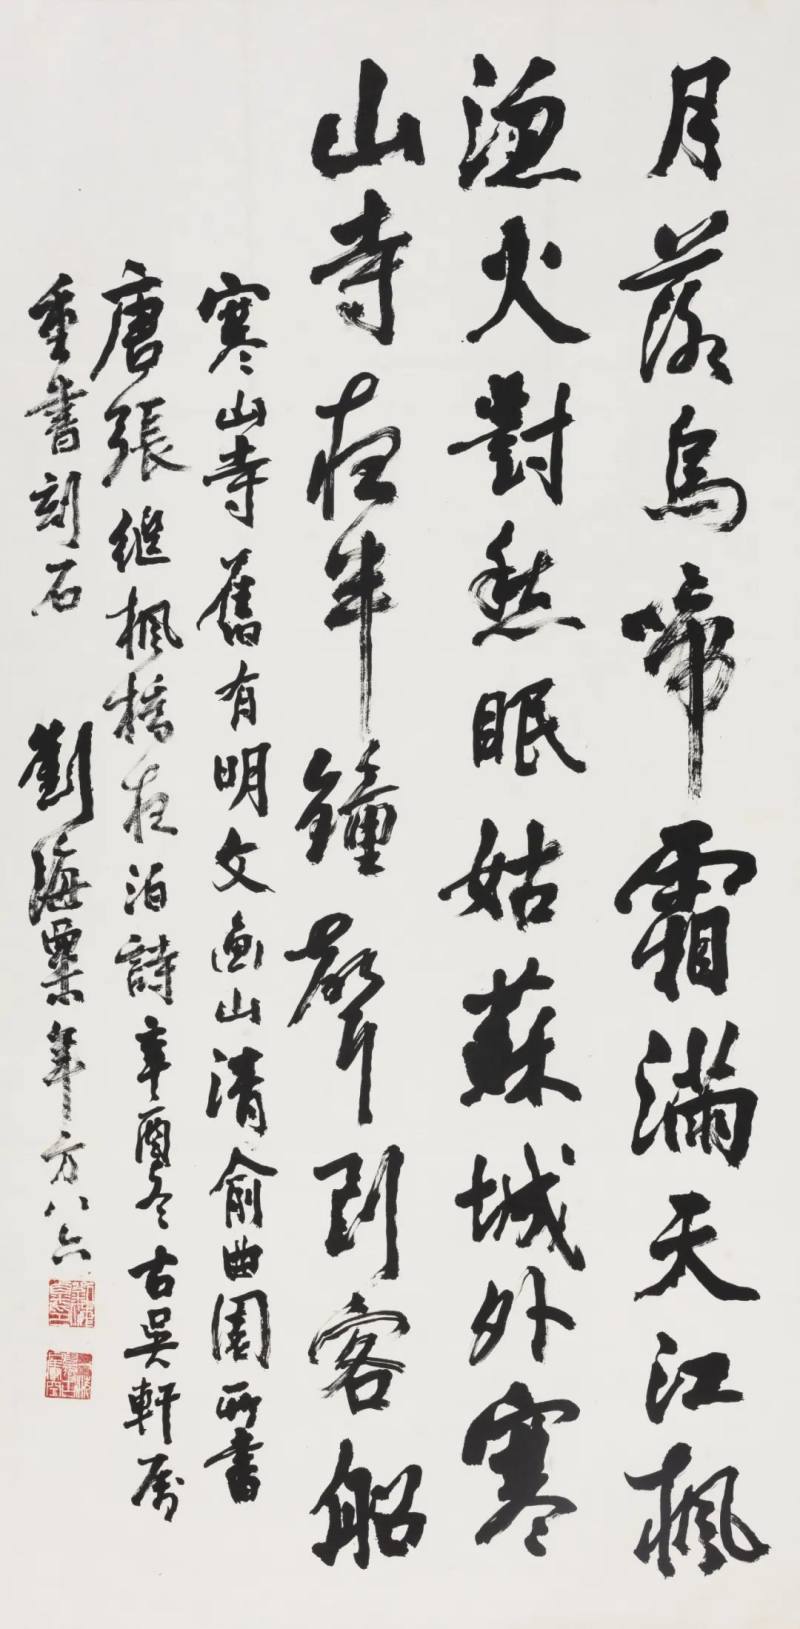 月落烏啼霜滿天江楓
漁火對愁眠姑蘇城外寒
山寺夜半鐘聲到客船
寒山寺舊有明文画山清俞曲園所書
唐張繼楓橋夜泊詩辛酉冬古吳軒属
重書刻石 劉海粟年方八六